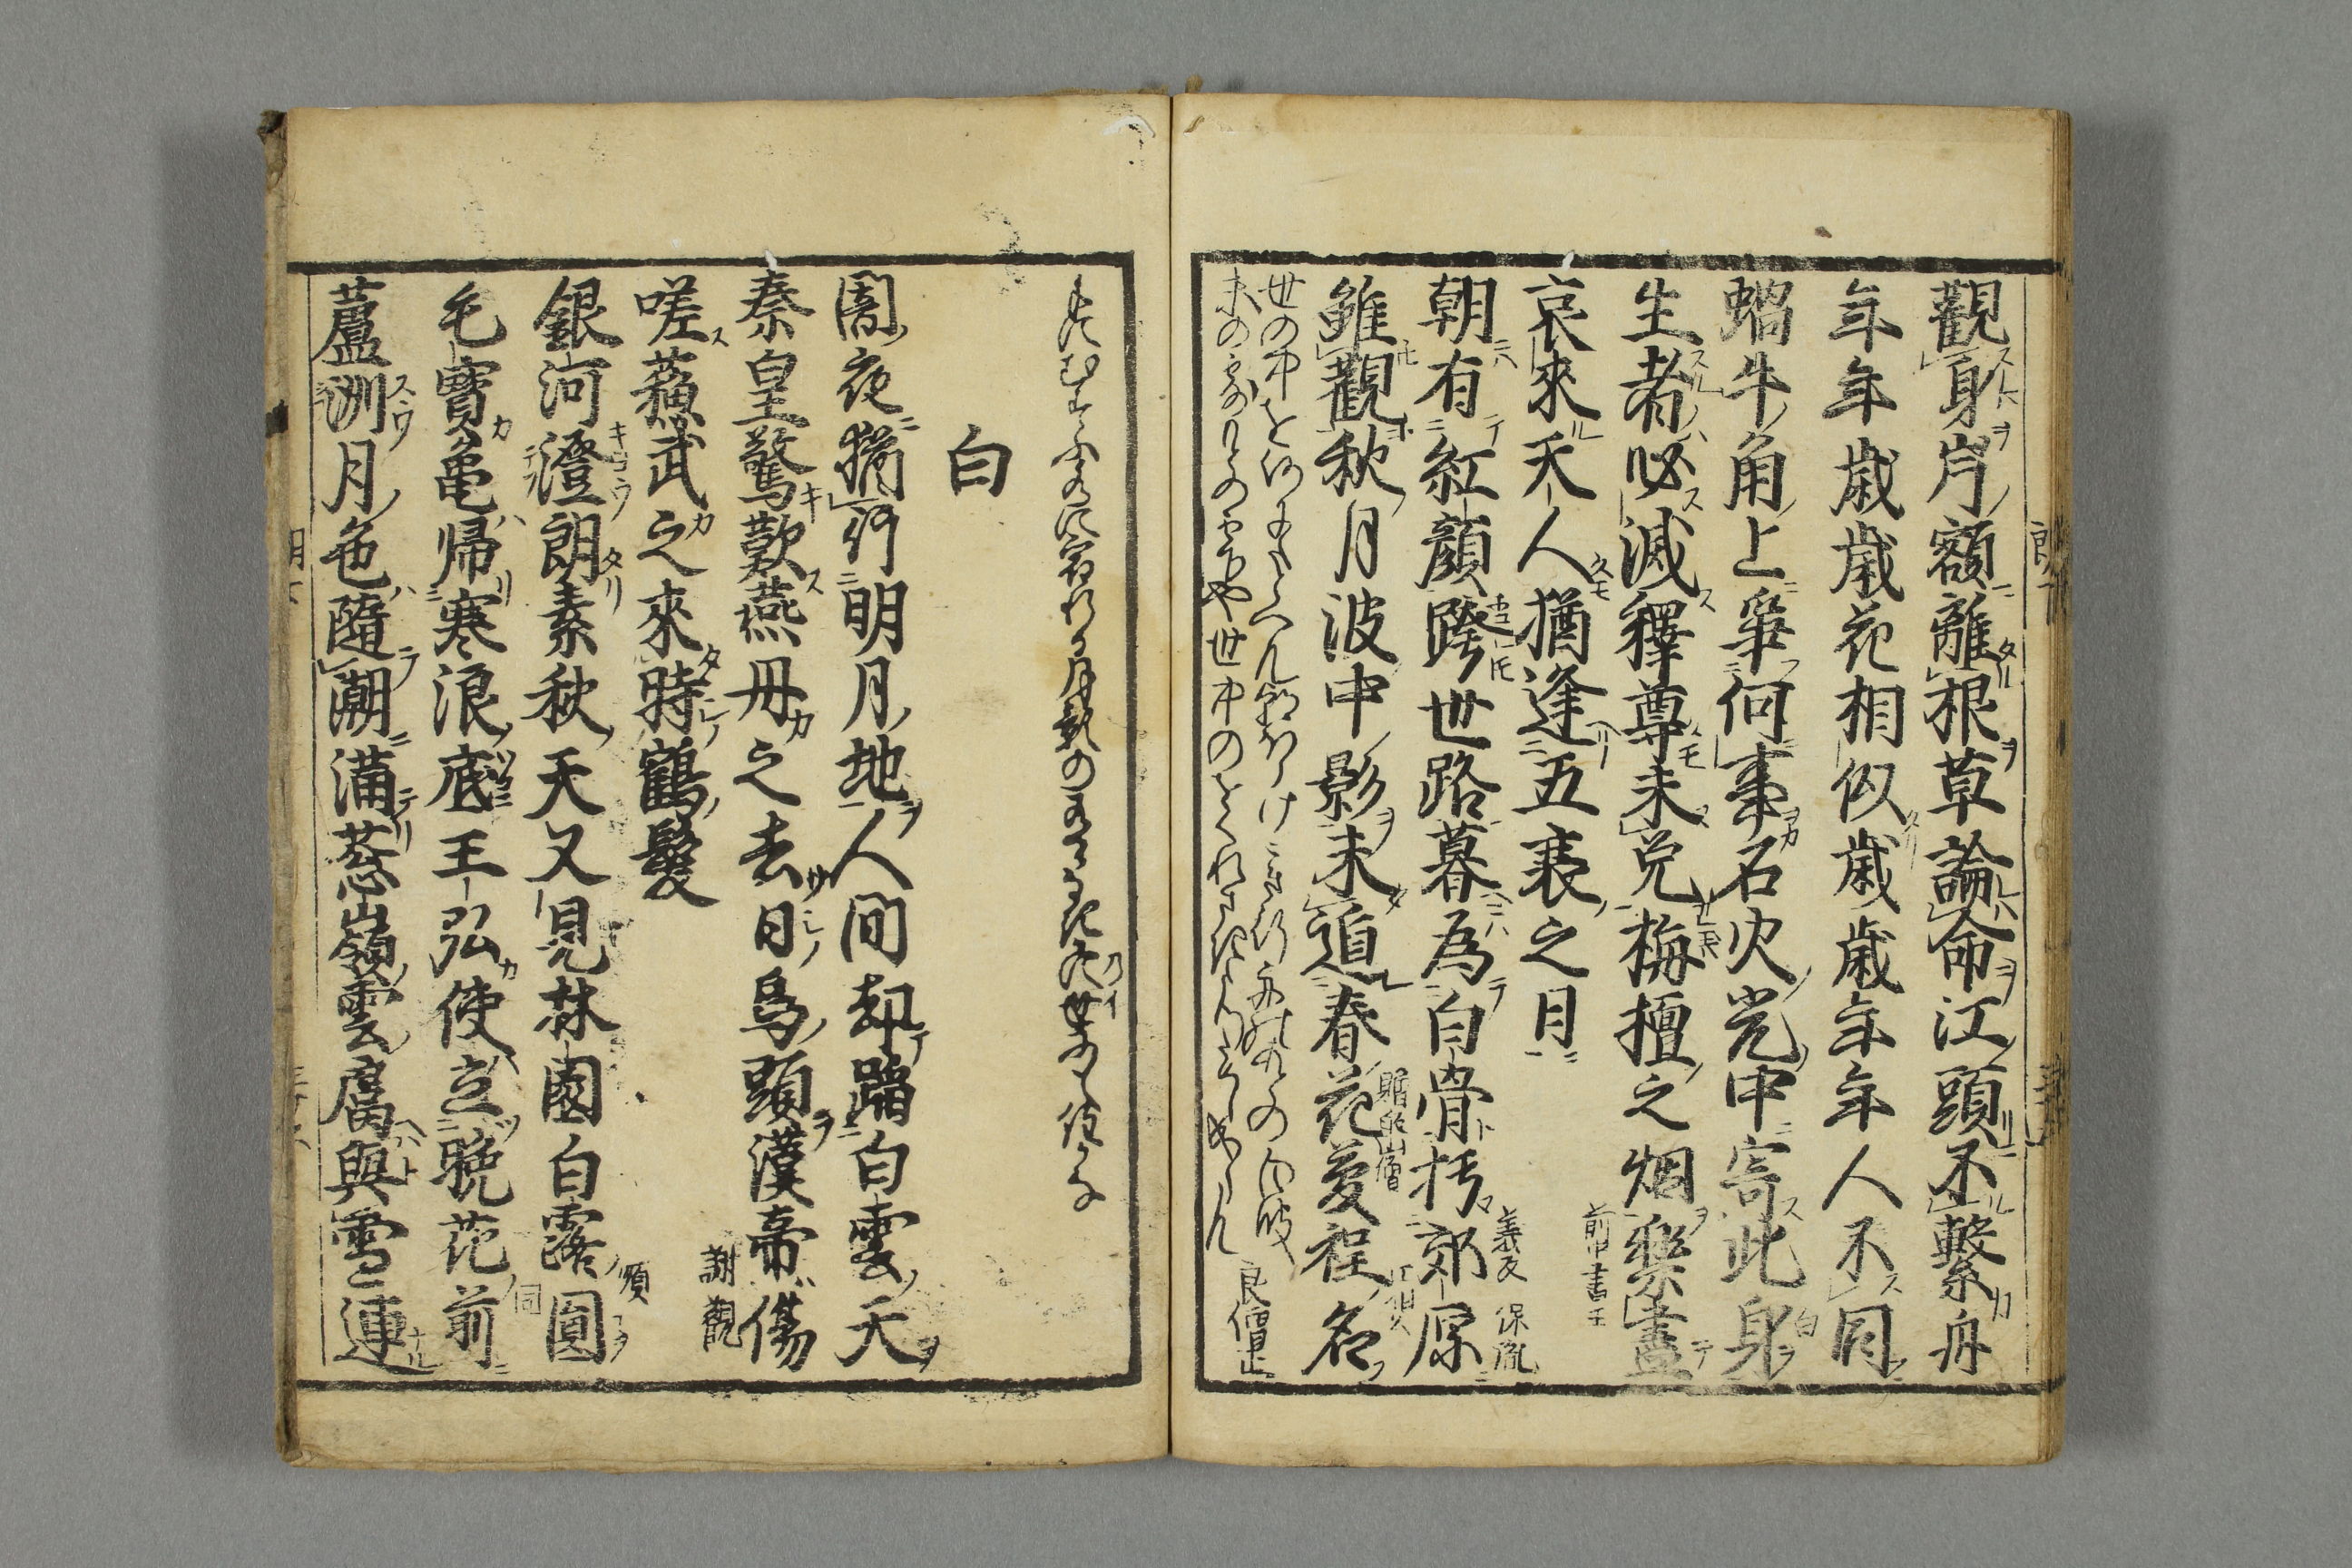 觀身岸額離根草論命江頭不繋舟
年年歳歳花相似歳歳年年人不同
蝸牛角上爭何事石火光中寄此身
白
生者必滅釋尊未免栴檀之烟樂盡
哀來天人猶逢五衰之日
前中書王
朝有紅顔誇世路暮為白骨朽郊原
義孝
雖觀秋月波中影未遁春花夢裡名
世の中を何にたとへん
末の露もとのしつくや世中の
良僧正
手にむすふ水に宿れる月影のあるかなきかの世にこそ
白
闇夜猶行明月地人間却蹈白雲天
秦皇驚歎燕丹之去日烏頭漢帝傷
嗟蘓武之來時鶴髪
謝觀
銀河澄朗素秋天又見林園白露圓
順
毛寶亀帰寒浪底王弘使立晩花前
同
蘆洲月色隨潮滿葱嶺雲膚與雪連